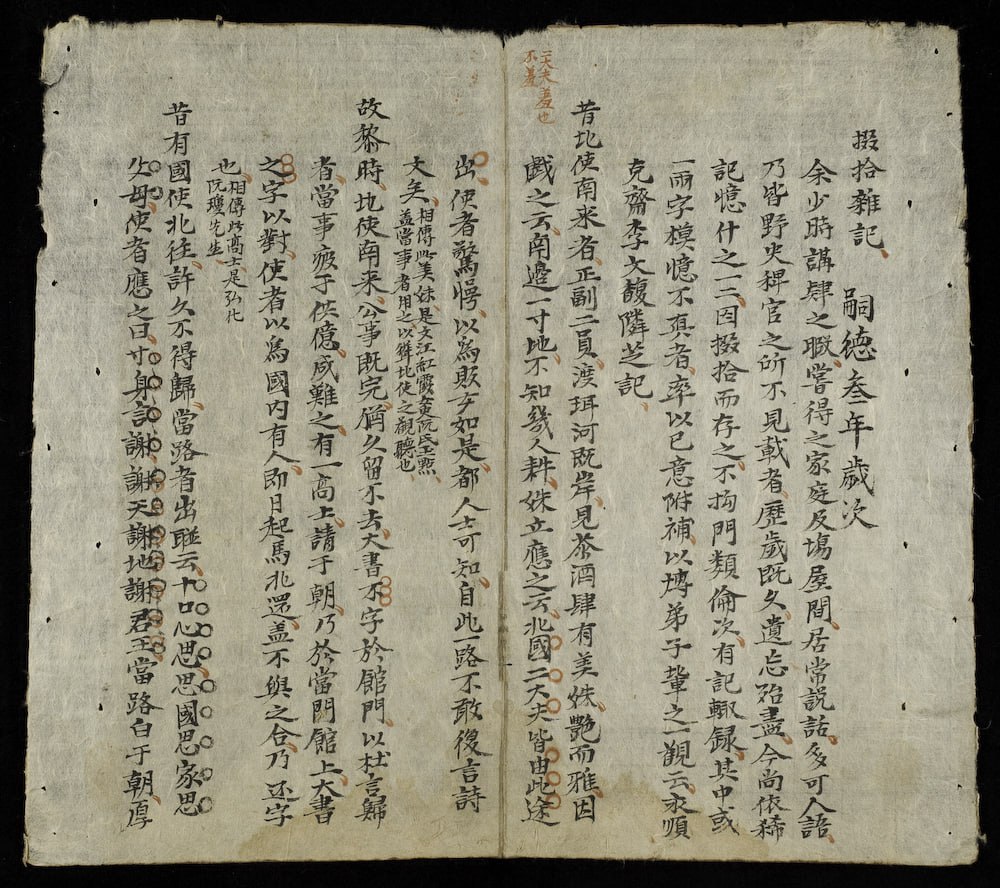 掇拾雜記 嗣德叁年歲次
余少時講肆之暇嘗得之家庭及塲屋間居常説話多可人語
乃皆野史稗官之所不見載者歷歲既久遺忘殆盡今尚依稀
記憶什之一二因掇拾而存之不拘門類倫次有記輙録其中或
一兩字模憶不真者率以已意附補以博弟子軰之一觀云永順
克齋李文馥隣芝記
昔北使南來者正副二員渡珥河既岸見茶酒肆有美姝艶而雅因
戯之云南邉一寸地不知幾人耕姝立應之云北國二大夫皆由此途
二大夫羞也
不羞
出使者驚愕以為販女如是都人士可知自此一路不敢復言詩
文矣相傳此美姝是文江紅霞女阮氏玉㸃
盖當事者用之以聳北使之觀聽也
故黎時北使南来公事既完稍久留不去大書不字於館門以杜言歸
者當事疲于供億咸難之有一高士請于朝乃於當門館上大書
之字以對使者以為國内有人即日起馬北還盖不與之合乃还字
也相傳此高士是弘化
阮瓊先生
昔有國使北往許久不得歸當路者出聮云十口心思思國思家思
父母使者應之曰寸身言謝謝天謝地謝君王當路白于朝厚